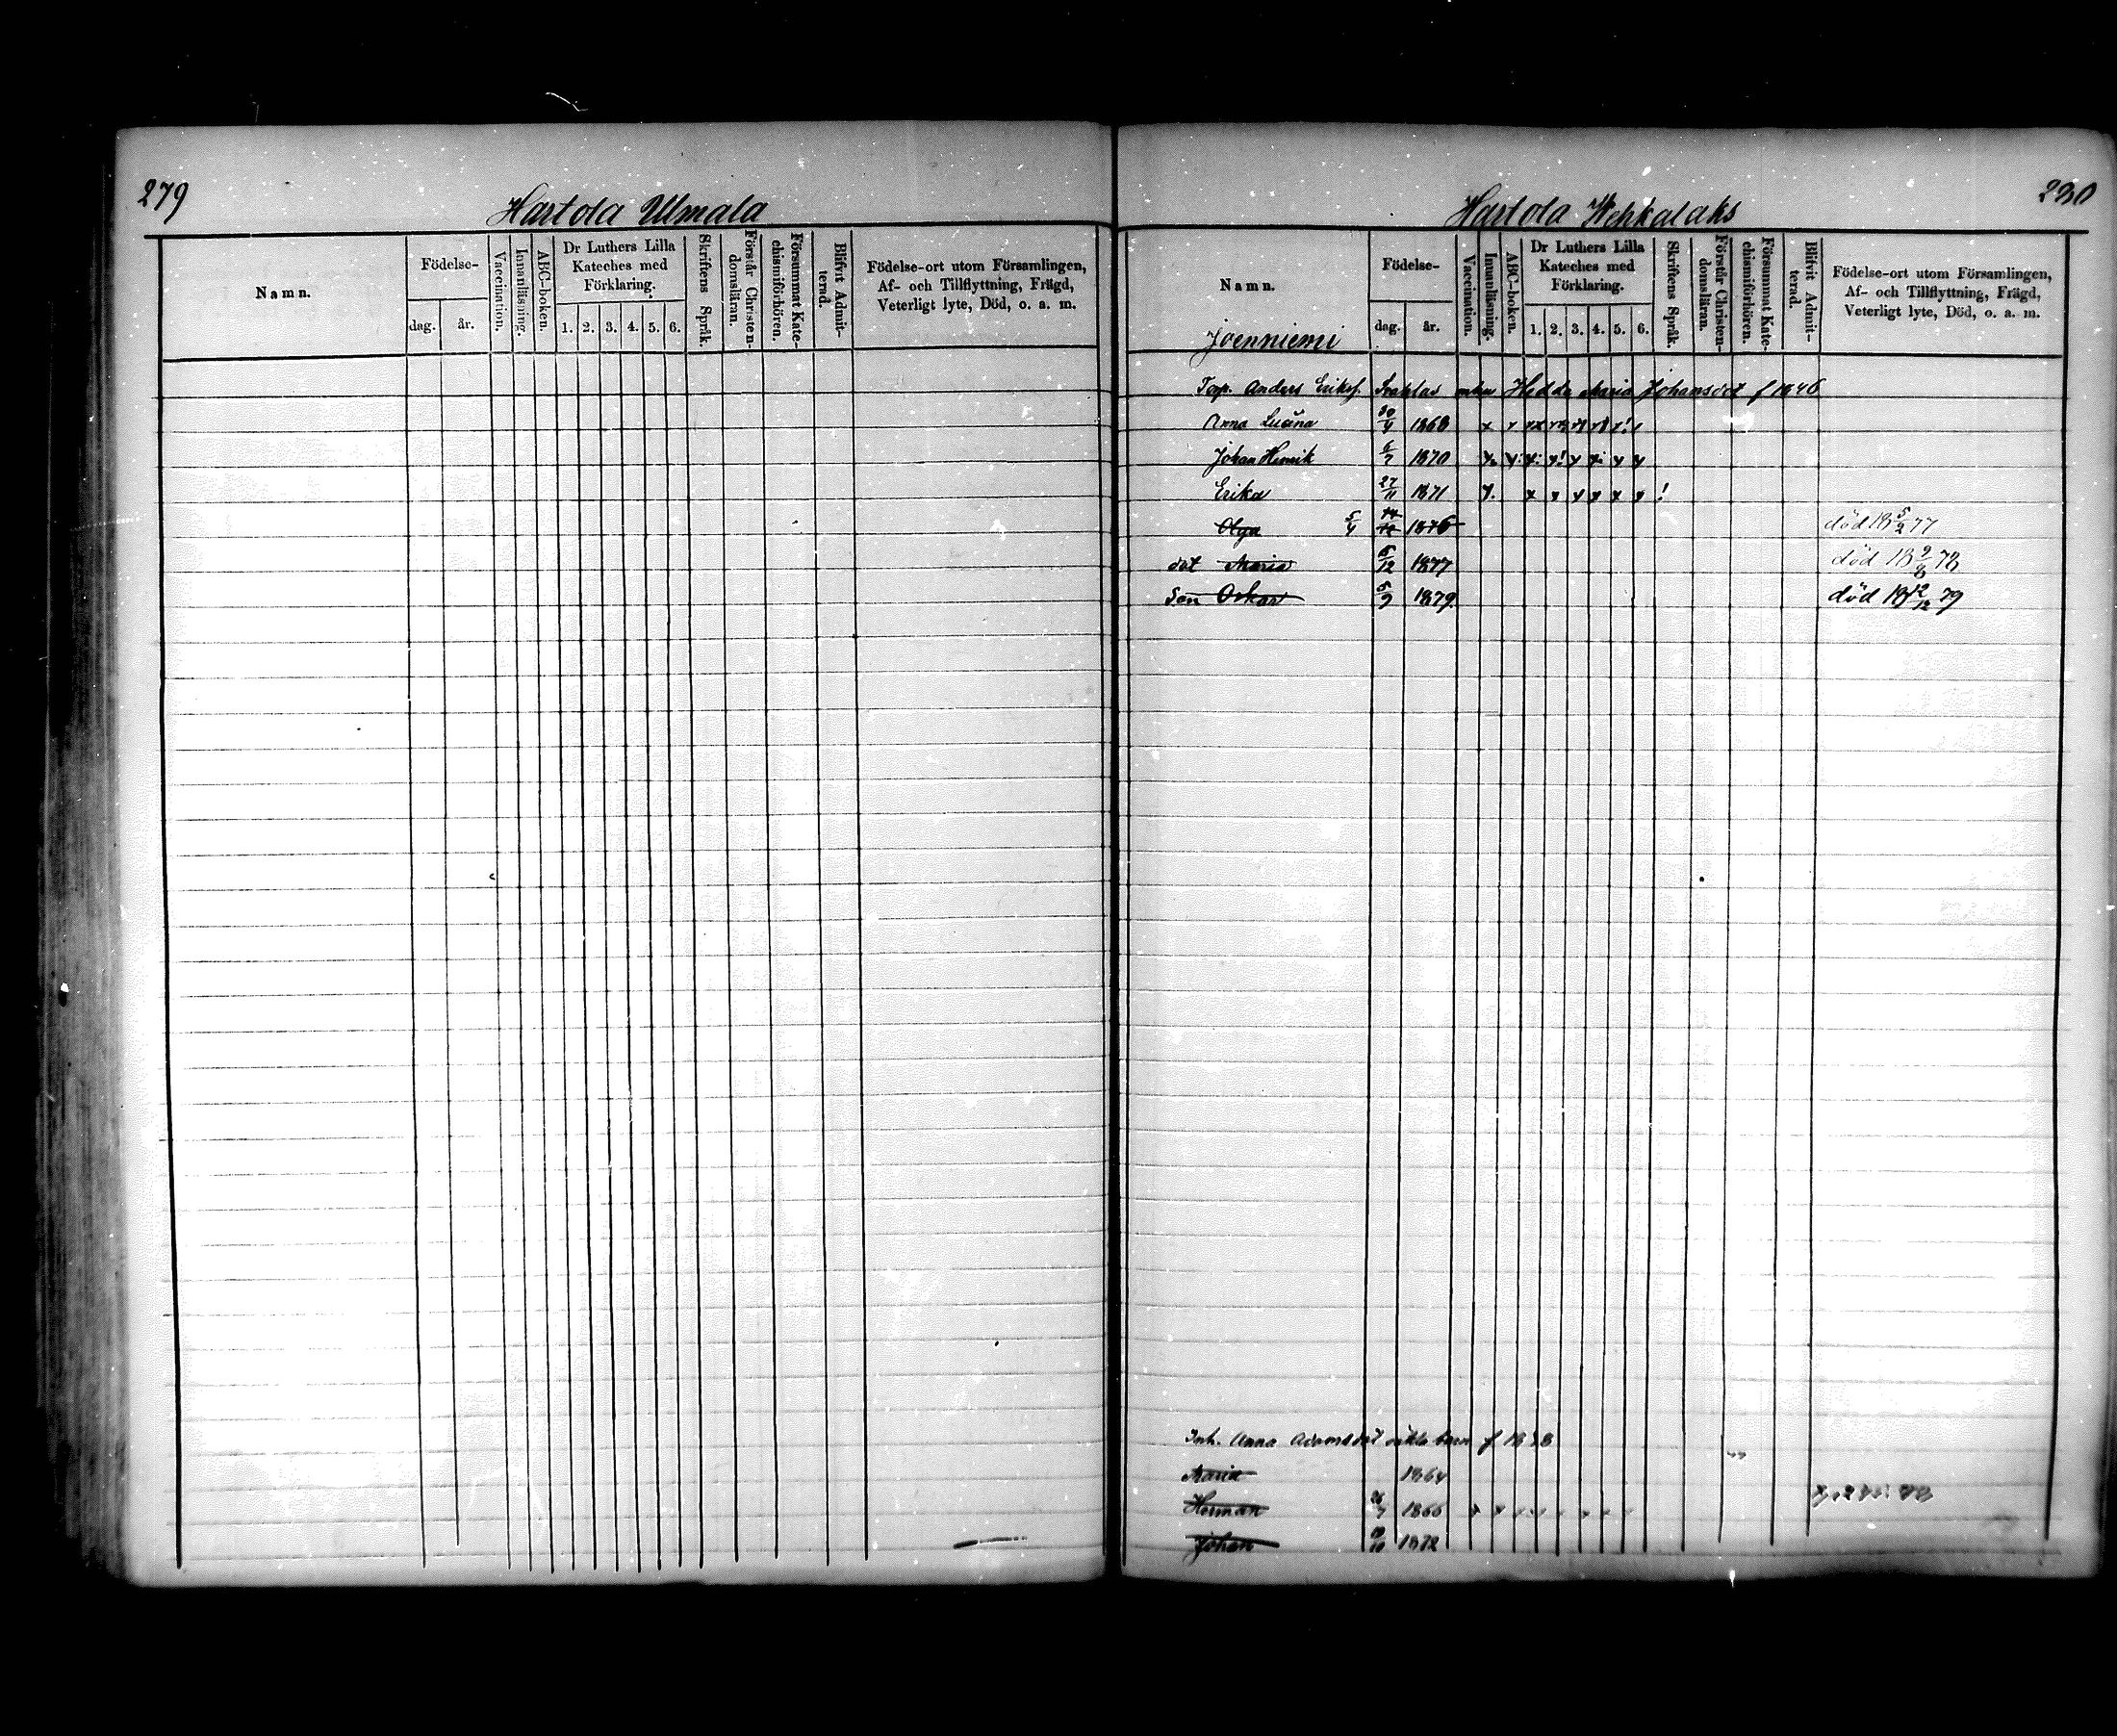 279
Hartola Ulmala
Namn.
Födelse-
dag. år.
Vaccination.
Innanläsning.
ABC-boken.
Dr Luthers Lilla
Kateches med
Förklaring.
1. 2. 3. 4. 5. 6.
Skriftens Språk.
Förstår Christen-
domsläran.
Försummat Kate-
chismiförhören.
Blifvit Admit-
terad.
Födelse-ort utom Församlingen,
Af- och Tillflyttning, Frägd,
Veterligt lyte, Död, o. a. m.
230
Hartola Wehkalaks
Namn.
Födelse-
dag. år.
Vaccination.
Innanläsning.
ABC-boken.
Dr Luthers Lilla
Kateches med
Förklaring.
1. 2. 3. 4. 5. 6.
Skriftens Språk.
Förstår Christen-
domsläran.
Försummat Kate-
chismiförhören.
Blifvit Admit-
terad.
Födelse-ort utom Församlingen,
Af- och Tillflyttning, Frägd,
Veterligt lyte, Död, o. a. m.
Joenniemi
Torp. Anders Eriks. Hedda Maria Johansdot f 1846
Anna 30/4 1868
Johan Henrik 6/7 1870
Erika 27/11 1871
Olga 5/4 1876 död 18 5/2 77
dot Maria 5/12 1877 död 18 9/8 78
Son Oskar 5/9 1879. död 18 12/12 79
Inh. Anna Adamsdot barn f
Maria 1864
Herman 1866
Johan 19/10 1872